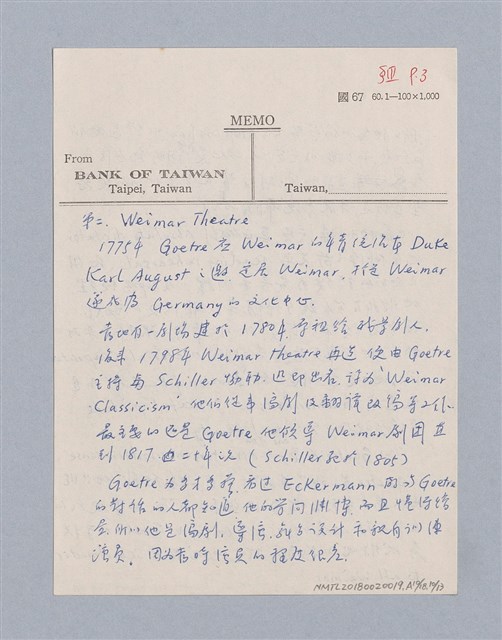 §Ⅲ P.3
國 67 60.1—100×1.000
MEMO
From
BANK OF TAIWAN
Taipei, Taiwan
Taiwan,
第二. Weimar Theatre
1775年 Goetre 在 Weimar 的 Duke
Karl August 之邀 定居 Weimar, 於是 Weimar
遂成為 Germany 的文化中心.
當地有一劇場建於 1780年, 原租給
後來 1798年 Weimar theatre 再造 便由 Goetre
主持 Schiller 協助. 迅即出名. 稱為 "Weimar
Classicism" 他們從事編劇 及翻譯改編等工作.
最主要的還是 Goetre 他領導 Weimar 劇團直
到 1817. 二十年次 (Schiller 死於 1805)
Goetre 為多才多藝. 看過 Eckermann 的 Goetre
的對話的人都知道 他的學问淵博. 而且懂得繪
畫. 所以他是編劇. 導演. 設計 和親自訓練
演員. 因為當時演員的程度很差.
NMTL20180020019.A